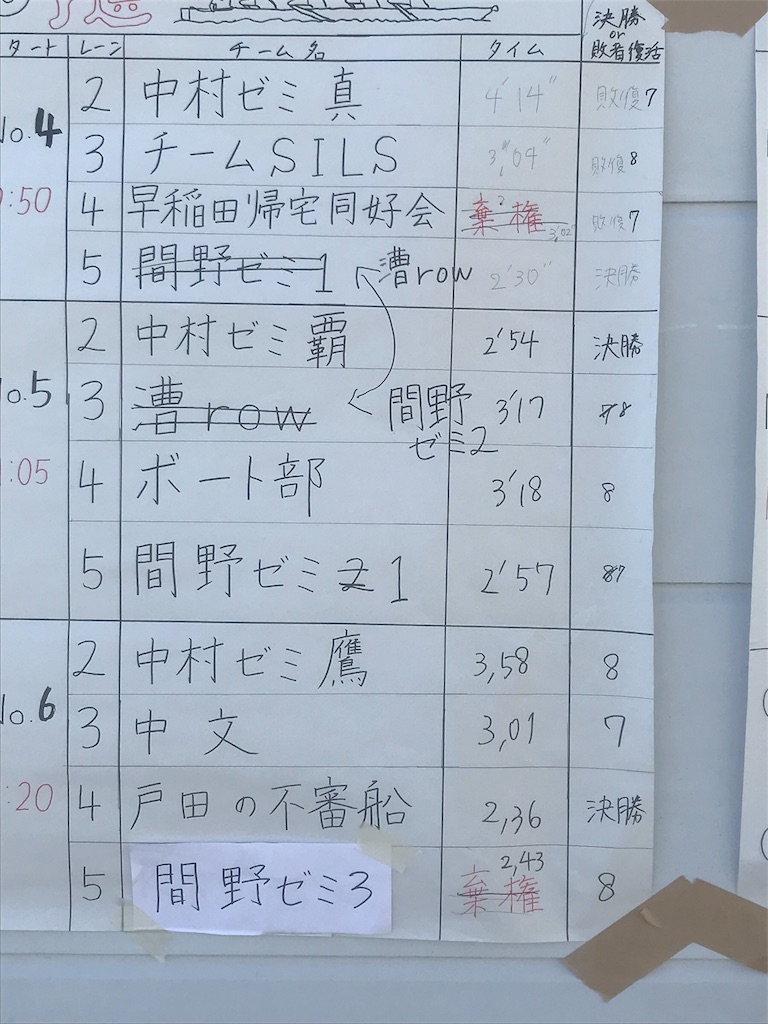 タート レーン チーム名 タイム 決勝 or 敗者復活
No.4
:50
2 中村ゼミ 真 4'14" 敗復7
3 チームSILS 3'04" 敗復8
4 早稲田帰宅同好会 棄権 3'02" 敗復7
5 間野ゼミ1 漕row 2'30" 決勝
No.5
:05
2 中村ゼミ 覇 2'54 決勝
3 漕row 間野ゼミ2 3'17 8
4 ボート部 3'18 8
5 間野ゼミ2 1 2'57 87
No.6
:20
2 中村ゼミ 鷹 3,58 8
3 中文 3,01 7
4 戸田の不審船 2,36 決勝
5 間野ゼミ3 棄権 2,43 8